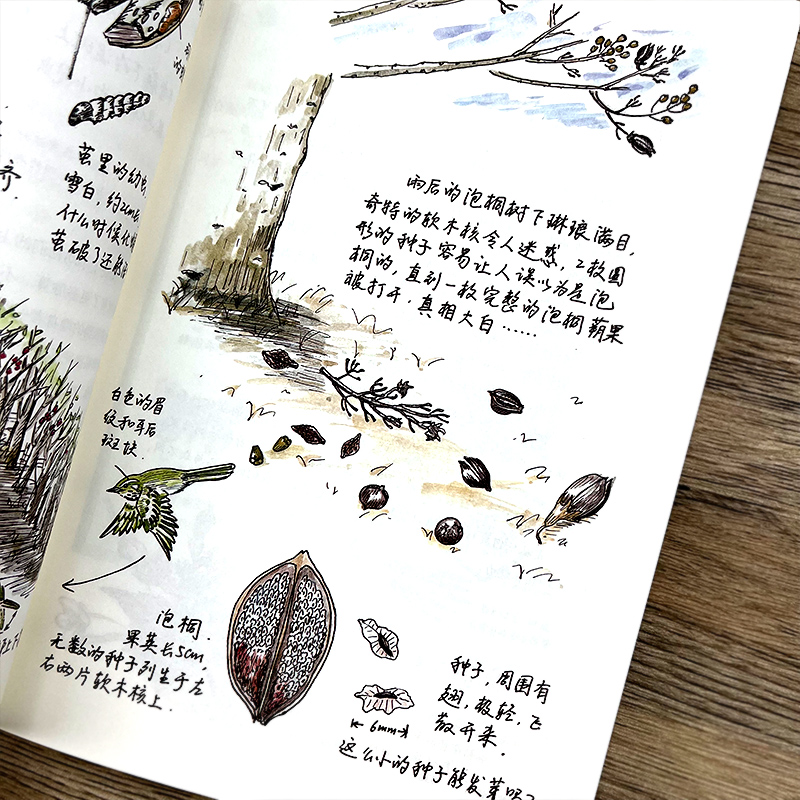 茧里的幼虫
雪白,约2cm长
什么时候化蛹
茧破了还能
齐.
雨后的泡桐树下琳琅满目,
奇特的软木核令人迷惑,2枚圆
形的种子容易让人误以为是泡
桐的,直到一枚完整的泡桐蒴果
被打开,真相大白……
白色的眉
纹和耳后
斑块.
泡桐.
果荚长5cm,
无数的种子列生于左
右两片软木核上.
种子,周围有
翅,极轻,飞
散开来.
6mm
这么小的种子能发芽吗?